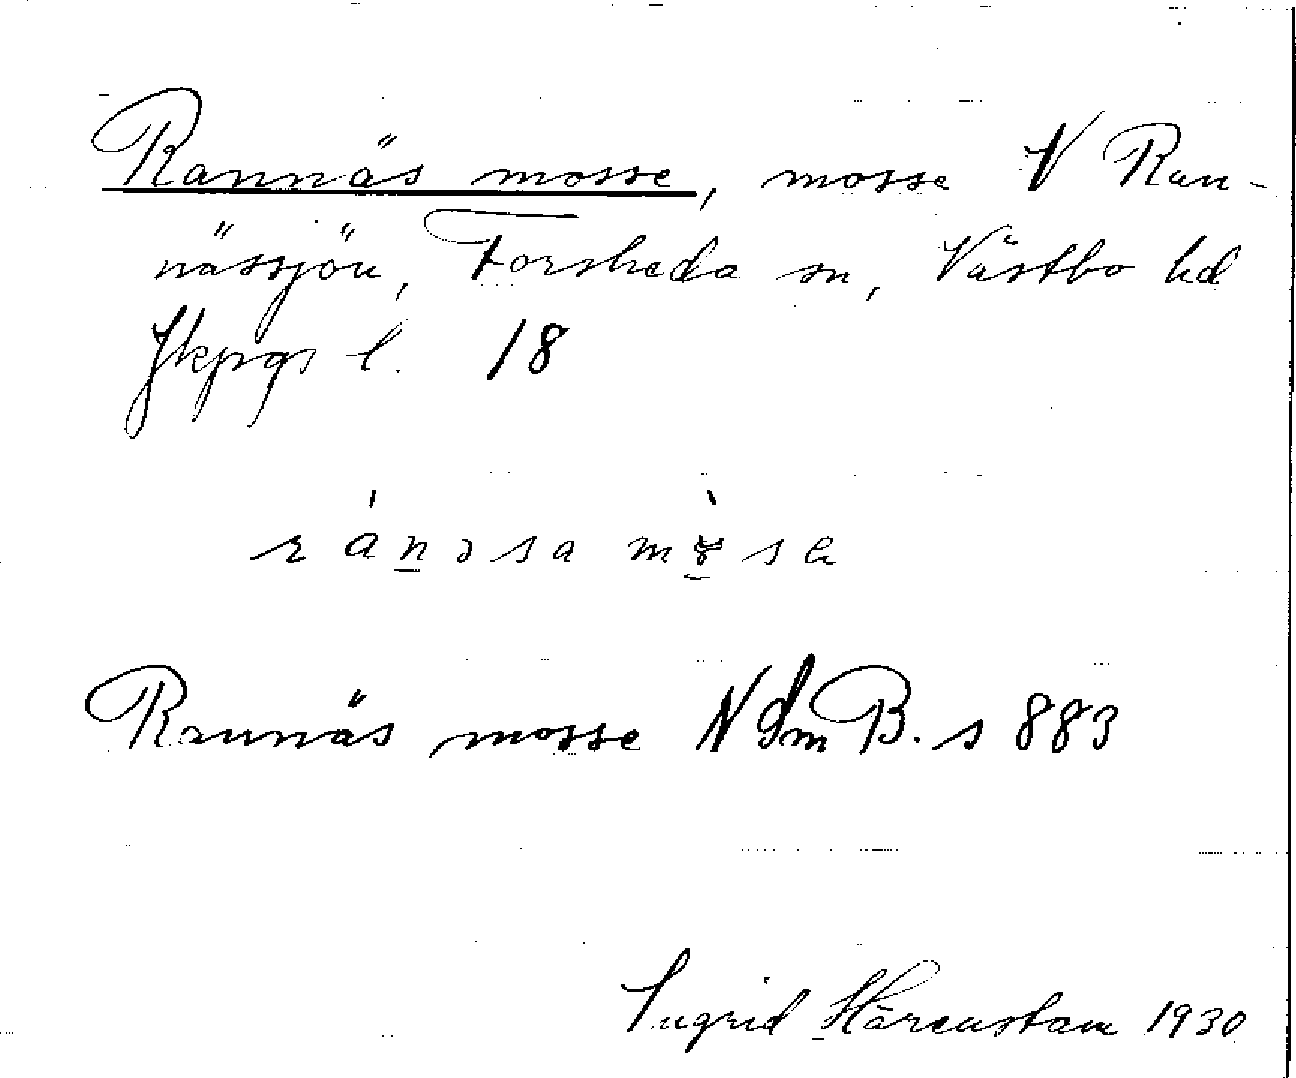 Rannäs mosse, mosse V Ran-
nässjön, Forsheda sn, Västbo hd
Jkpgs l. 18
ránəsa mɤ̀se
Rannäs mosse N Sm B. s 883
Ingrid Härenstam 1930